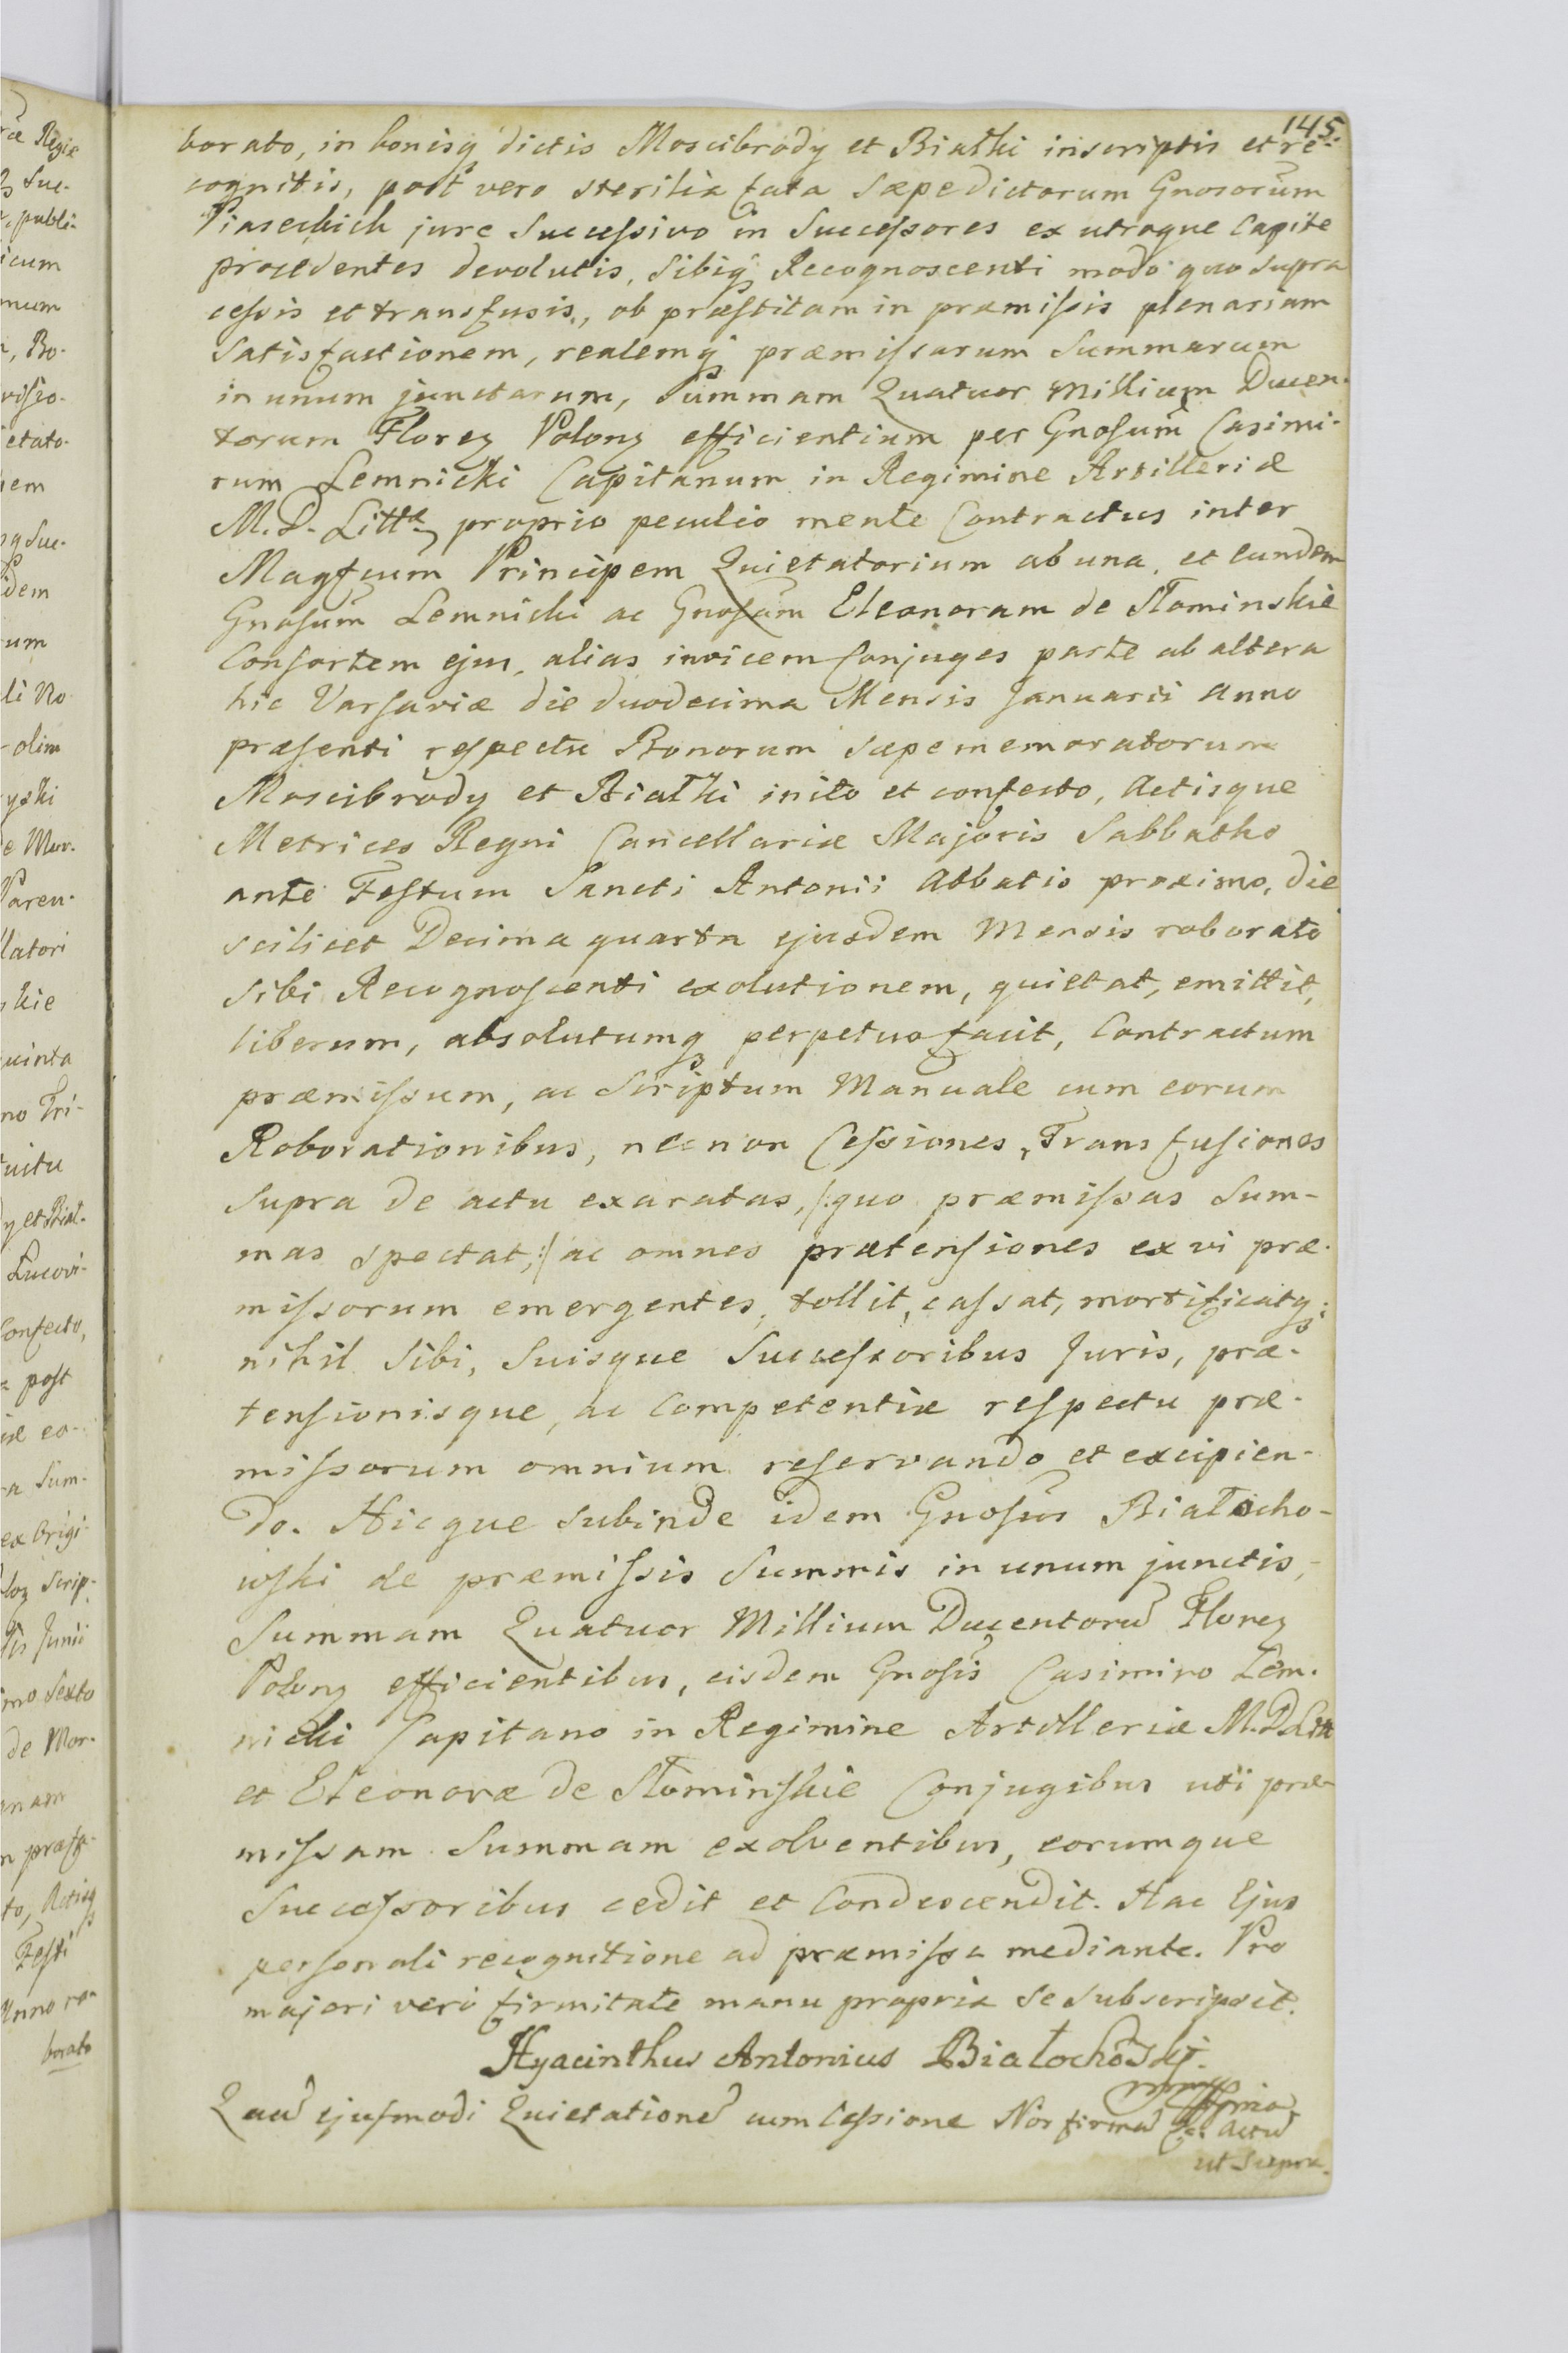 145.
borato, in bonisq dictis Moscibrody et Białki inscriptis et re-
cognitis, post vero sterilia fata Sæpedictorum Gnosorum
Piaseckich jure Successivo in Successores ex utroque Capite
procedentes devolutis, Sibiq Recognoscenti modo quo supra
cessis et transfusis, ob præstitam in præmissis plenariam
Satisfactionem, realemq præmissarum Summarum
in unum junctarum, Summam Quatuor Millium Ducen-
torum Florez Polonz efficientium per Gnosum Casimi-
rum Lemnicki Capitanum in Regimine Artilleriæ
M. D. Litt. proprio peculio mente Contractus inter
Magfcum Principem Quietatorium ab una, et eundem
Gnosum Lemnicki ac Gnosam Eleonoram de Słominskie
Consortem ejus, alias invicem Conjuges parte ab altera
hic Varsaviæ die duodecima Mensis Januarii Anno
præsenti respectu Bonorum sæpememoratorum
Moscibrody et Białki inito et confecto, Actisque
Metrices Regni Cancellariæ Majoris Sabbatho
ante Festum Sancti Antonii Abbatis proximo, die
scilicet Decima quarta ejusdem Mensis roborato
Sibi Recognoscenti exolutionem, quietat, emittit,
liberum, absolutumq perpetuo facit, Contractum
præmissum, ac Scriptum Manuale cum eorum
Roborationibus, necnon Cessiones, Transfusiones
Supra de actu exaratas, /:quo præmissas Sum-
mas spectat,:/ ac omnes prætensiones ex vi præ-
missorum emergentes, tollit, cassat, mortificatq;
nihil Sibi, Suisque Successoribus Juris, præ-
tensionisque, ac Competentiæ respectu præ-
missorum omnium reservando et excipien-
do. Hicque subinde idem Gnosus Białocho-
wski de præmissis Summis in unum junctis,
Summam Quatuor Millium Ducentorum Florez
Polonz efficientibus, eisdem Gnosis Casimiro Lem-
nicki Capitano in Regimine Artilleriæ M. D. Litt
et Eleonoræ de Słominskie Conjugibus uti præ-
missam Summam exolventibus, eorumque
Successoribus cedit et Condescendit. Hac Ejus
personali recognitione ad præmissa mediante. Pro
majori vero firmitate manu propria se subscripsit.
Hyacinthus Antonius Białochowski.
Quam ejusmodi Quietationem cum Cessione Nos firmam Actum
ut Supra.